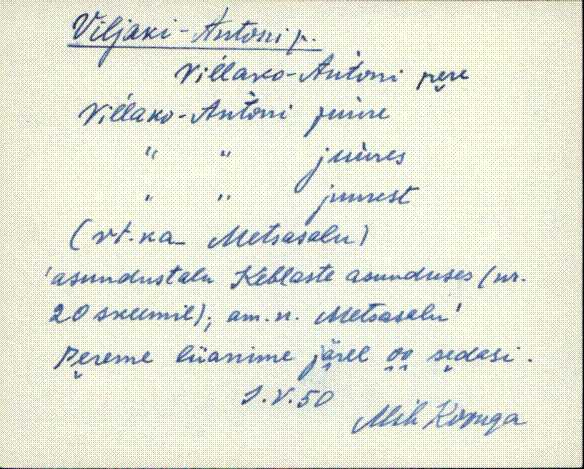 Viljaki-Antoni p.
Villako-Antoni pere
Villako-Antoni juure
" " juures
" " juurest
(vt. ka Metsasalu)
'asundustalu Keblaste asunduses (nr.
20 skeemil); am. n. Metsasalu'
Pereme liianime järel oo sedasi.
1.V.50
Mih Kopuga